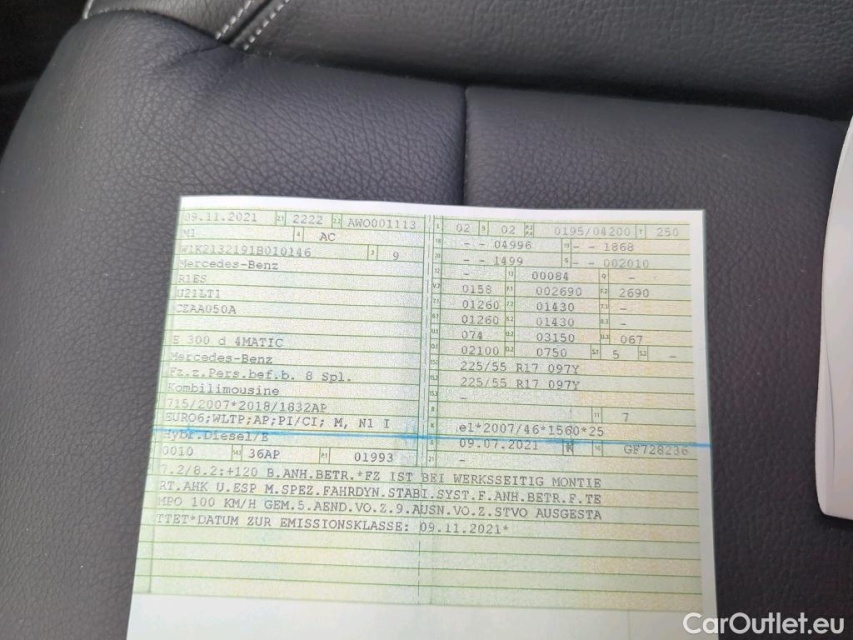 09.11.2021 2222 AWO001113
M1 AC
W1K2132191B010146 9
Mercedes-Benz
R1ES
U21LT1
CZAA050A
E 300 d 4MATIC
Mercedes-Benz
Fz.z.Pers.bef.b. 8 Spl.
Kombilimousine
715/2007*2018/1832AP
EURO6;WLTP;AP;PI/CI; M, N1 I
Hybr.Diesel/E
0010 36AP 01993
02 02 0195/04200 250
- - 04996 - - 1868
- - 1499 - - 002010
- 00084 -
0158 002690 2690
01260 01430 -
01260 01430 -
074 03150 067
02100 0750 5 -
225/55 R17 097Y
225/55 R17 097Y
-
- 7
e1*2007/46*1560*25
09.07.2021 GF728236
-
7.2/8.2:+120 B.ANH.BETR.*FZ IST BEI WERKSSEITIG MONTIE
RT.AHK U.ESP M.SPEZ.FAHRDYN.STABI.SYST.F.ANH.BETR.F.TE
MPO 100 KM/H GEM.5.AEND.VO.Z.9.AUSN.VO.Z.STVO AUSGESTA
TTET*DATUM ZUR EMISSIONSKLASSE: 09.11.2021*
CarOutlet.eu